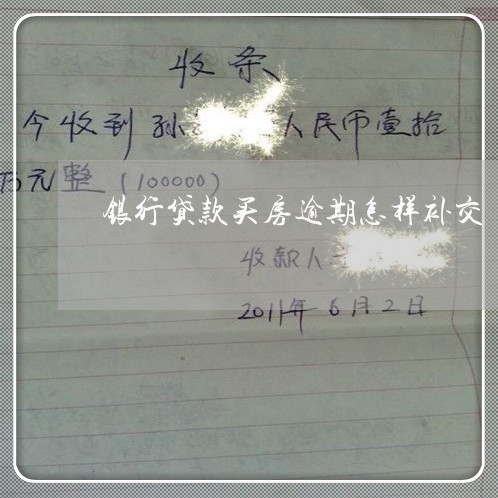 收条
今收到孙 人民币壹拾
万元整（100000）
銀行贷款买房逾期怎样补交
收款人
2011年6月2日